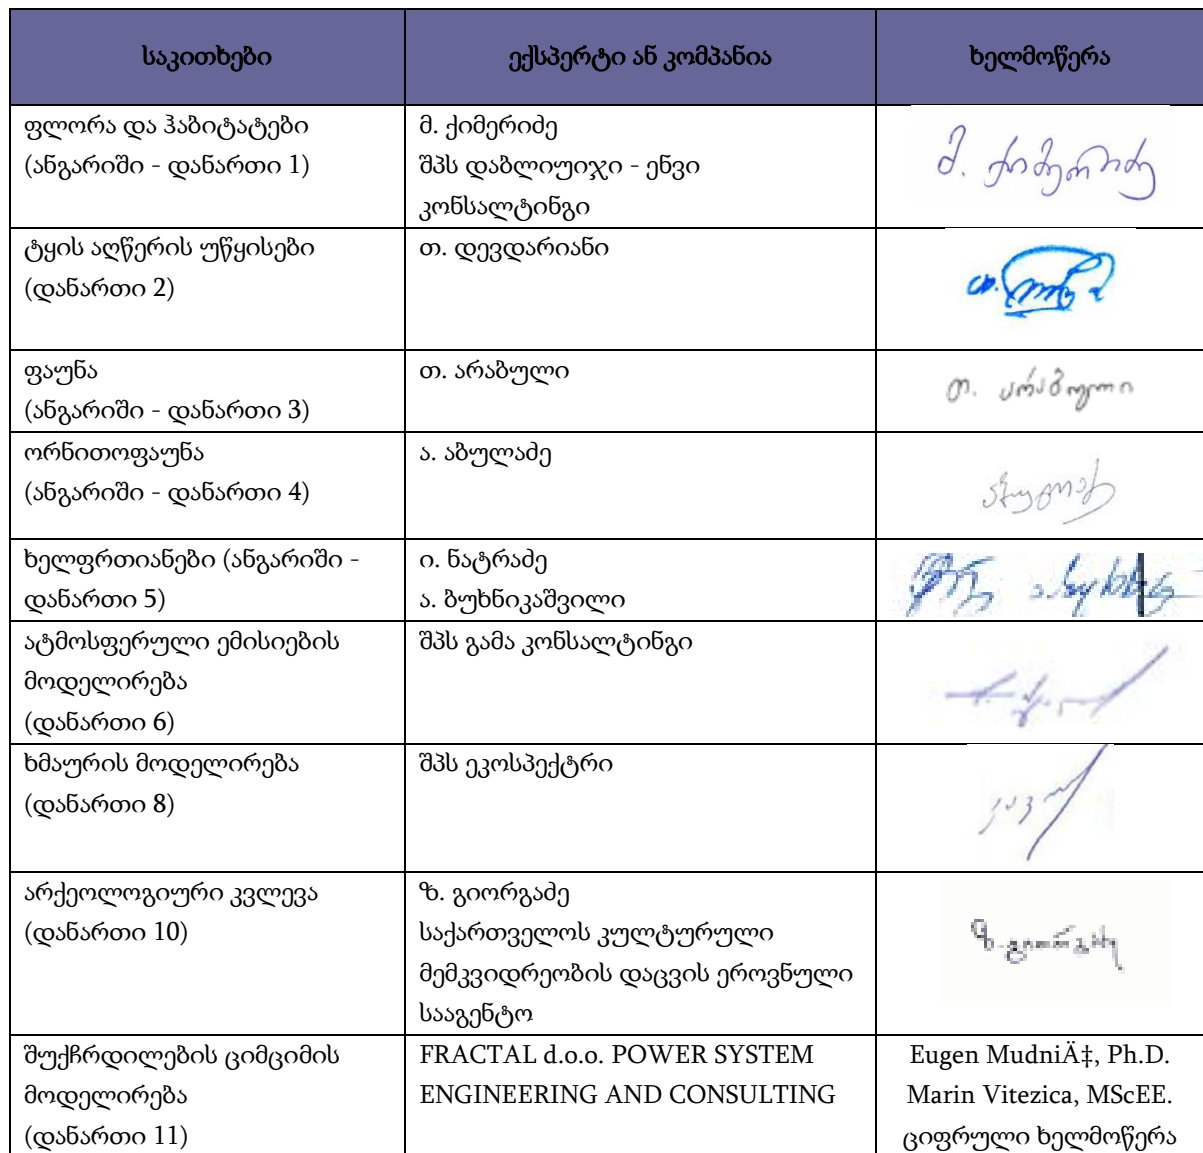 საკითხები ექსპერტი ან კომპანია ხელმოწერა
ფლორა და ჰაბიტატები
(ანგარიში - დანართი 1)
მ. ქიმერიძე
შპს დაბლიუიჯი - ენვი
კონსალტინგი
მ. ქიმერიძე
ტყის აღწერის უწყისები
(დანართი 2)
თ. დევდარიანი
ფაუნა
(ანგარიში - დანართი 3)
თ. არაბული
თ. არაბული
ორნითოფაუნა
(ანგარიში - დანართი 4)
ა. აბულაძე
ხელფრთიანები (ანგარიში -
დანართი 5)
ი. ნატრაძე
ა. ბუხნიკაშვილი
ატმოსფერული ემისიების
მოდელირება
(დანართი 6)
შპს გამა კონსალტინგი
ხმაურის მოდელირება
(დანართი 8)
შპს ეკოსპექტრი
არქეოლოგიური კვლევა
(დანართი 10)
ზ. გიორგაძე
საქართველოს კულტურული
მემკვიდრეობის დაცვის ეროვნული
სააგენტო
ზ. გიორგაძე
შუქჩრდილების ციმციმის
მოდელირება
(დანართი 11)
FRACTAL d.o.o. POWER SYSTEM
ENGINEERING AND CONSULTING
Eugen MudniÄ‡, Ph.D.
Marin Vitezica, MScEE.
ციფრული ხელმოწერა